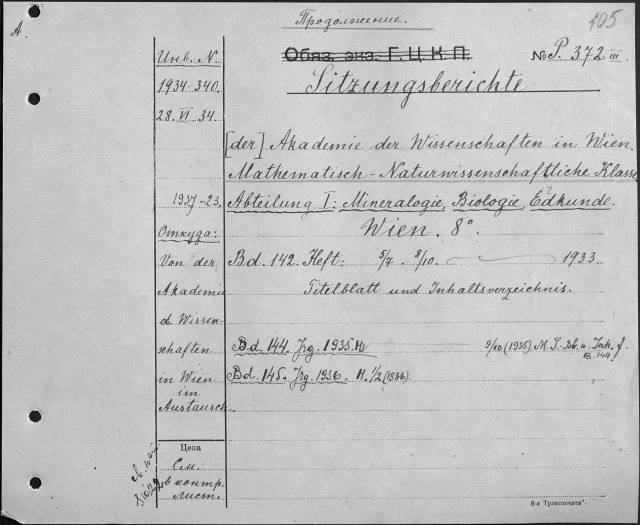 Продолженіе.
105
А.
Обяз. экз. Г.Ц.К.П.
№ P. 372 III
Sitzungsberichte
Инв. N.
1934-340.
28.VI.34.
[der] Akademie der Wissenschaften in Wien.
Mathematisch-Naturwissenschaftliche Klasse
1937-23.
Abteilung I: Mineralogie, Biologie, Edkunde.
Wien. 8°.
Откуда:
Von der
Akademie
d. Wissen-
schaften
in Wien
im
Austausch.
Bd. 142. Heft: 5/7. 8/10. 1933
Titelblatt und Inhaltsverzeichnis.
Bd. 144. Jrg. 1935. H. 9/10 (1935) M. T.-Bl. u. Inh. f. B. 144.
Bd. 145. Jrg. 1936. H. 1/2 (1936).
Цена
См.
в контр.
лист.
8-я Транспечать".